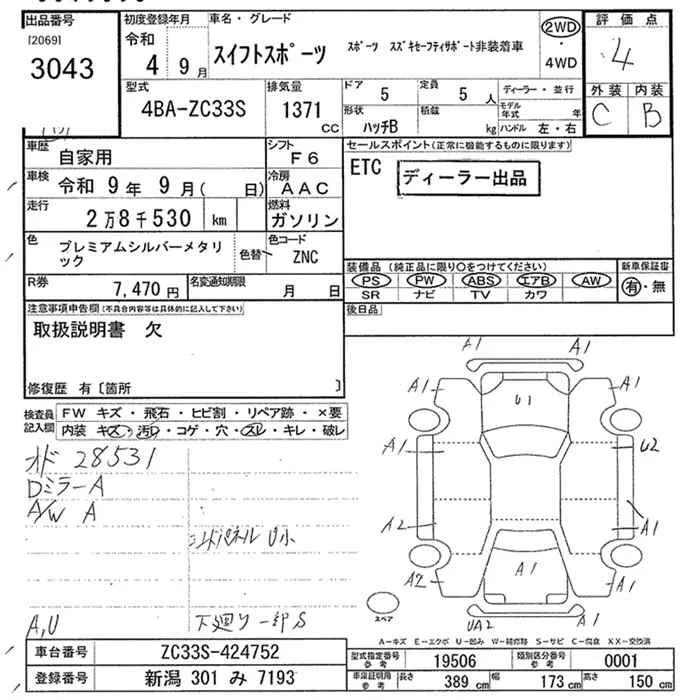 出品番号
[2069]
3043
初度登録年月
令和
4 9月
車名・グレード
スイフトスポーツ スポーツ スズキセーフティサポート非装着車
2WD
・
4WD
評価点
4
外装 内装
C B
型式
4BA-ZC33S
排気量
1371
CC
ドア 5
定員 5 人
形状
ハッチB
積載
kg
ディーラー・並行
モデル年式 年
ハンドル 左・右
車歴
自家用
シフト
F6
車検
令和 9年 9月( 日)
冷房
AAC
走行
2万8千530 km
燃料
ガソリン
色
プレミアムシルバーメタリック
色替
色コード
ZNC
R券
7,470 円
名変通知期限
月 日
セールスポイント(正常に機能するものに限ります)
ETC ディーラー出品
装備品 (純正品に限り○をつけてください)
PS PW ABS エアB AW
SR ナビ TV カワ
新車保証書
有・無
後日品
注意事項申告欄(不具合内容等は具体的に記入して下さい)
取扱説明書 欠
修復歴 有〔箇所 〕
検査員記入欄
FW キズ・飛石・ヒビ割・リペア跡・×要
内装 キズ・汚レ・コゲ・穴・スレ・キレ・破レ
オド 28531
Dミラー A
A/W A
コンドパネル U小
A,U
下廻り一部S
A1 A1
A1 A1
U1
A1 U2
A2 A1
A1
A2 A1
UA2 A1
スペア
A-キズ E-エクボ U-凹み W-補修跡 S-サビ C-腐食 XX-交換済
車台番号
ZC33S-424752
登録番号
新潟 301 み 7193
型式指定番号
参考
19506
類別区分番号
参考
0001
車庫証明用
参考
長さ 389 cm
幅 173 cm
高さ 150 cm